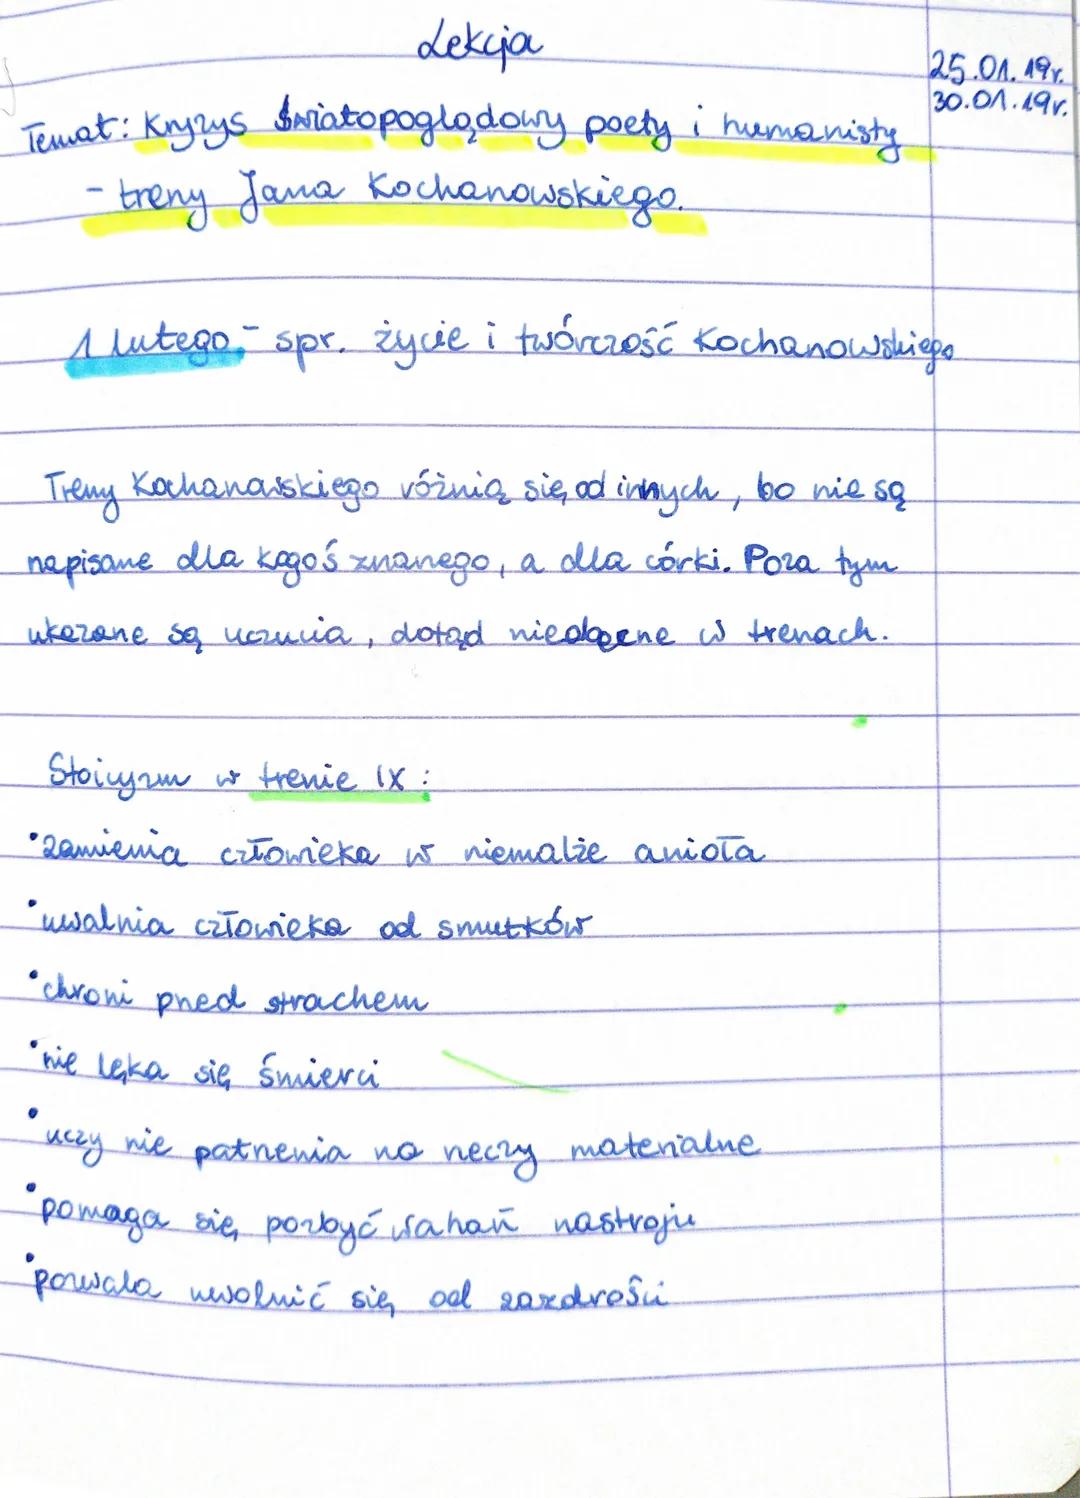 Lekcja
25.01.19r.
30.01.19r.
Temat: Kryzys światopoglądowy poety i humanisty
- treny Jana Kochanowskiego.
1 lutego - spr. życie i twórczość Kochanowskiego
Treny Kochanowskiego różnią się od innych, bo nie są
napisane dla kogoś znanego, a dla córki. Poza tym
ukazane są uczucia, dotąd nieobecne w trenach.
Stoicyzm w trenie IX:
•zamienia człowieka w niemalże anioła
•uwalnia człowieka od smutków
•chroni przed strachem
•nie lęka się śmierci
•uczy nie patrzenia na rzeczy materialne
•pomaga się pozbyć wahań nastroju
•pozwala uwolnić się od zazdrości